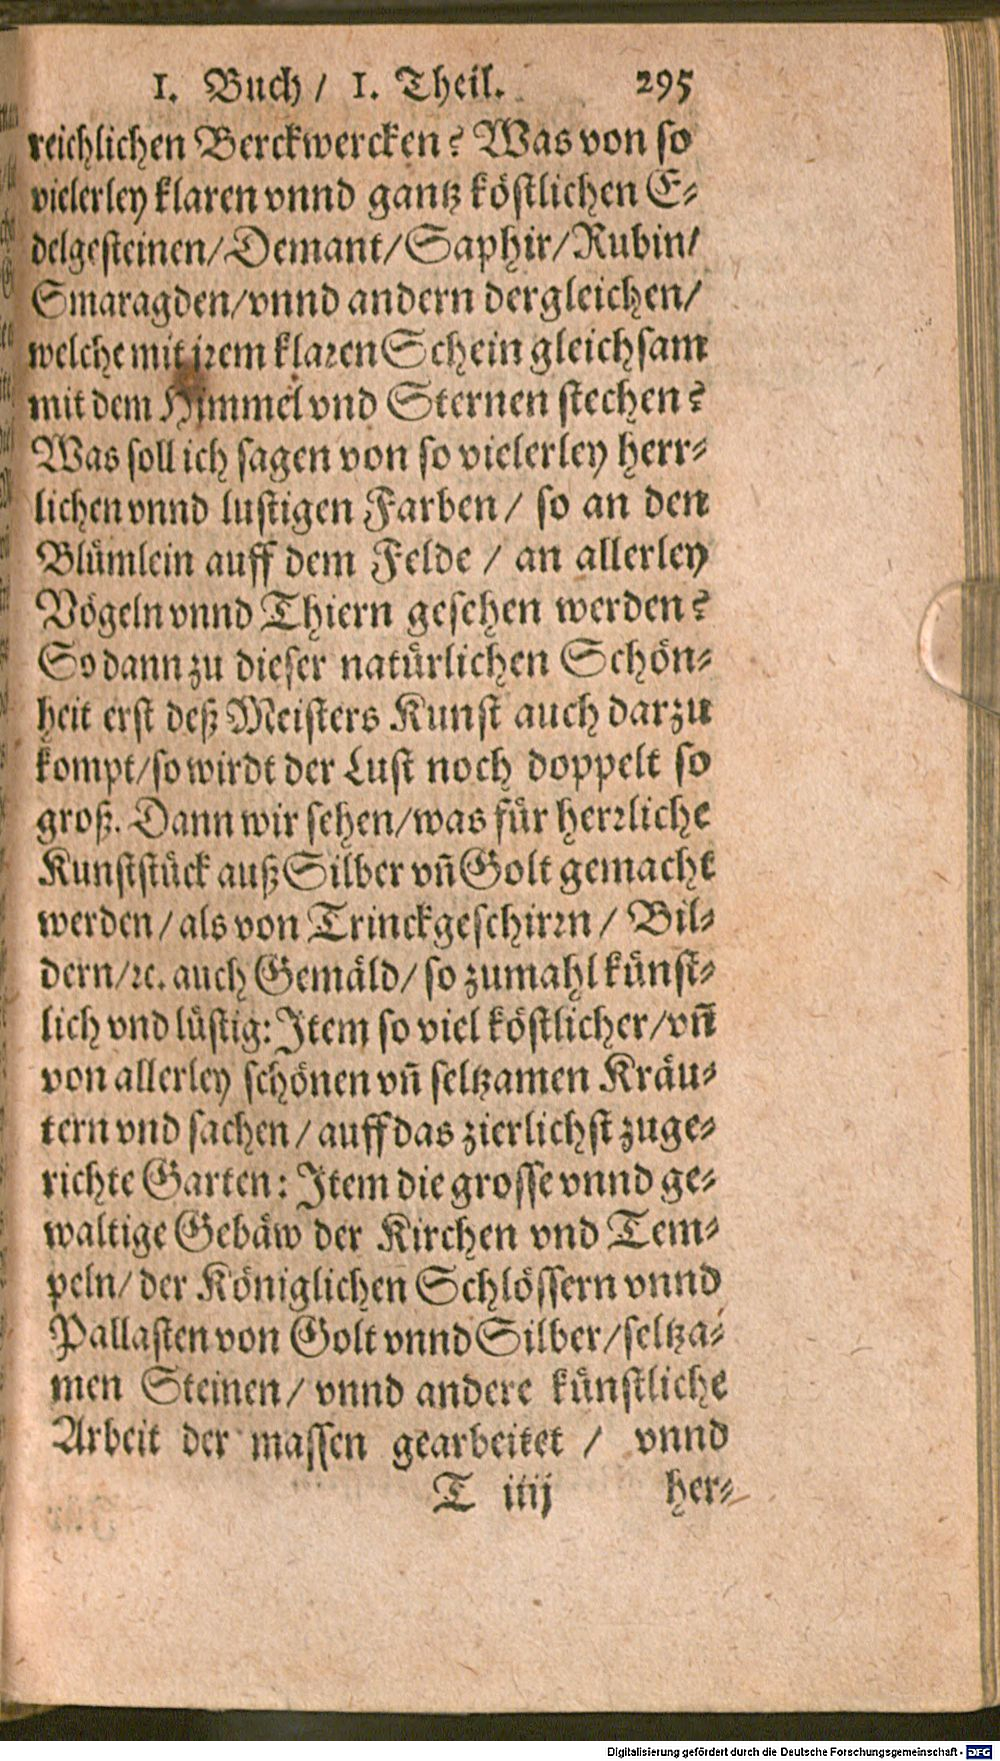 1. Buch / 1. Theil. 295
reichlichen Berckwercken? Was von so
vielerley klaren vnnd gantz köstlichen E-
delgesteinen/Demant/Saphir/Rubin/
Smaragden/vnnd andern dergleichen/
welche mit jrem klaren Schein gleichsam
mit dem Himmel vnd Sternen stechen?
Was soll ich sagen von so vielerley herr-
lichen vnnd lustigen Farben / so an den
Blümlein auff dem Felde / an allerley
Vögeln vnnd Thiern gesehen werden?
So dann zu dieser natürlichen Schön-
heit erst deß Meisters Kunst auch darzu
kompt/so wirdt der Lust noch doppelt so
groß. Dann wir sehen/was für herrliche
Kunststück auß Silber vñ Golt gemacht
werden / als von Trinckgeschirrn / Bil-
dern/ꝛc. auch Gemäld/ so zumahl künst-
lich vnd lüstig: Item so viel köstlicher/vñ
von allerley schönen vñ seltzamen Kräu-
tern vnd sachen / auff das zierlichst zuge-
richte Garten: Item die grosse vnnd ge-
waltige Gebäw der Kirchen vnd Tem-
peln/ der Königlichen Schlössern vnnd
Pallasten von Golt vnnd Silber/seltza-
men Steinen/ vnnd andere künstliche
Arbeit der massen gearbeitet / vnnd
T iiij her-
Digitalisierung gefördert durch die Deutsche Forschungsgemeinschaft - DFG